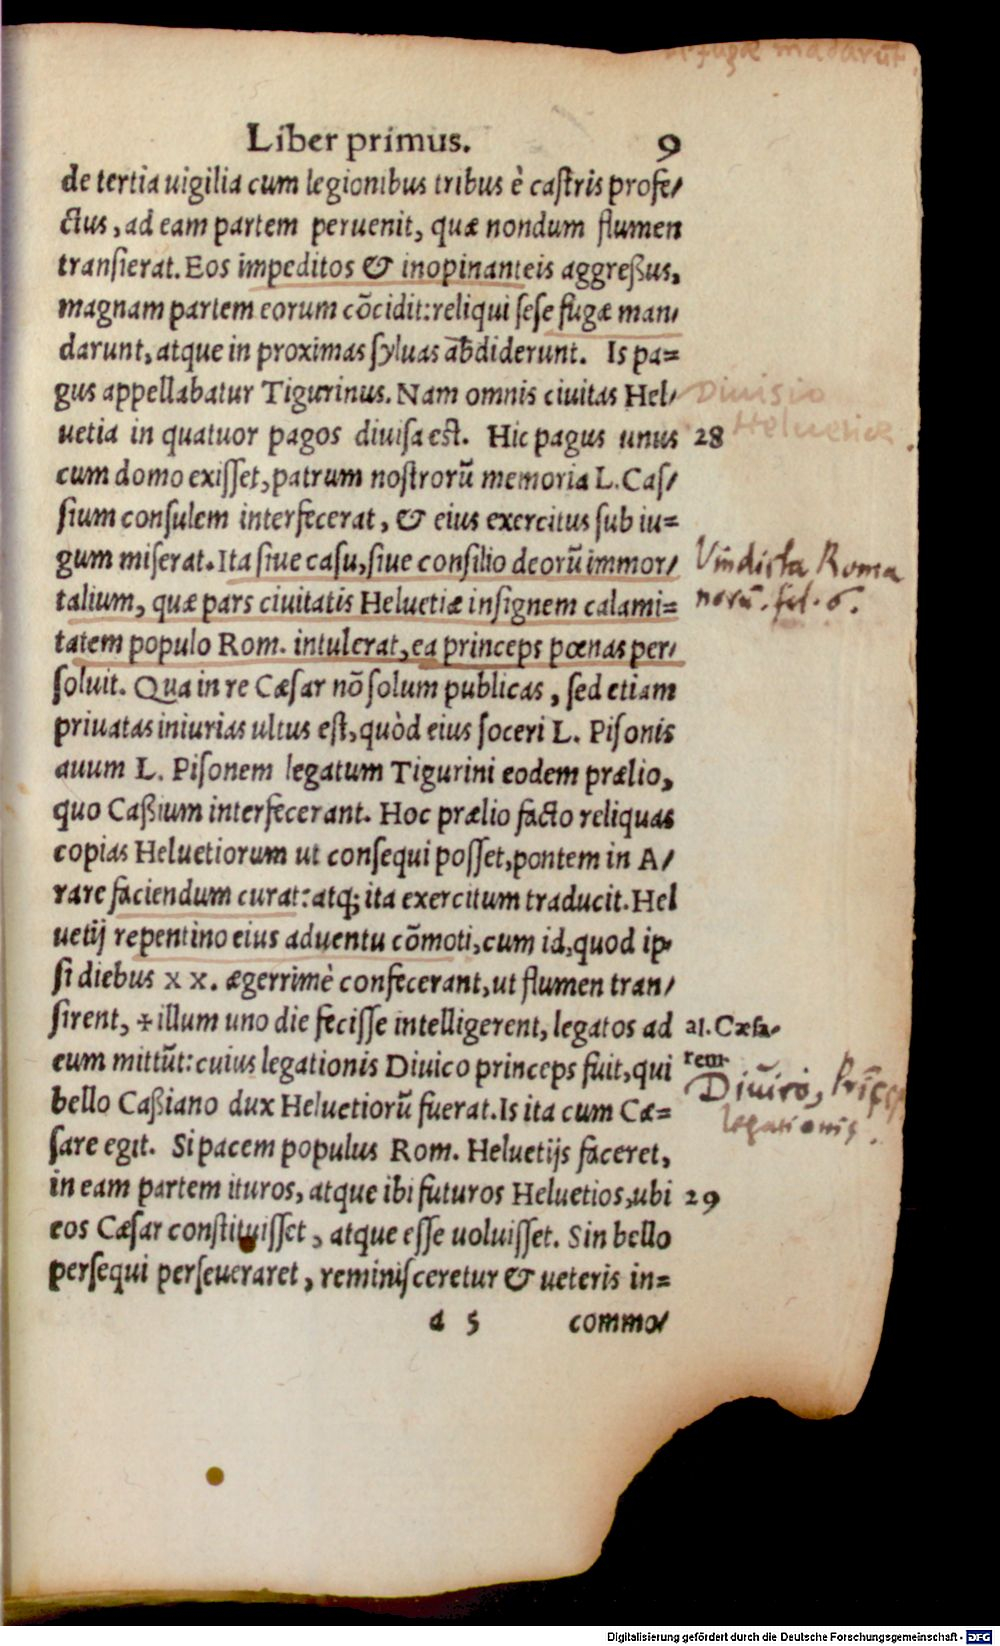 fugæ mādarūt
Liber primus. 9
de tertia uigilia cum legionibus tribus è caſtris profe/
ctus, ad eam partem peruenit, quæ nondum flumen
tranſierat. Eos impeditos & inopinanteis aggreßus,
magnam partem eorum cōcidit: reliqui ſeſe fugæ man/
darunt, atque in proximas ſyluas abdiderunt. Is pa=
gus appellabatur Tigurinus. Nam omnis ciuitas Hel/
Diuisio
Heluetiæ
uetia in quatuor pagos diuiſa eſt. Hic pagus unus 28
cum domo exiſſet, patrum noſtrorū memoria L. Caſ/
ſium conſulem interfecerat, & eius exercitus ſub iu=
gum miſerat. Ita ſiue caſu, ſiue conſilio deorū immor/
Vindicta Roma
norū. fil. 6.
talium, quæ pars ciuitatis Heluetiæ inſignem calami=
tatem populo Rom. intulerat, ea princeps pœnas per/
ſoluit. Qua in re Cæſar nō ſolum publicas, ſed etiam
priuatas iniurias ultus eſt, quòd eius ſoceri L. Piſonis
auum L. Piſonem legatum Tigurini eodem prælio,
quo Caßium interfecerant. Hoc prælio facto reliquas
copias Heluetiorum ut conſequi poſſet, pontem in A/
rare faciendum curat: atq; ita exercitum traducit. Hel
uetij repentino eius aduentu cōmoti, cum id, quod ip/
ſi diebus x x. ægerrimè confecerant, ut flumen tran/
ſirent, + illum uno die feciſſe intelligerent, legatos ad
al. Cæſa-
rem
eum mittūt: cuius legationis Diuico princeps fuit, qui
Diuico,
legationis.
bello Caßiano dux Heluetiorū fuerat. Is ita cum Cæ=
ſare egit. Si pacem populus Rom. Heluetijs faceret,
in eam partem ituros, atque ibi futuros Heluetios, ubi 29
eos Cæſar conſtituiſſet, atque eſſe uoluiſſet. Sin bello
perſequi perſeueraret, reminiſceretur & ueteris in=
a 5 commo/
Digitalisierung gefördert durch die Deutsche Forschungsgemeinschaft - DFG